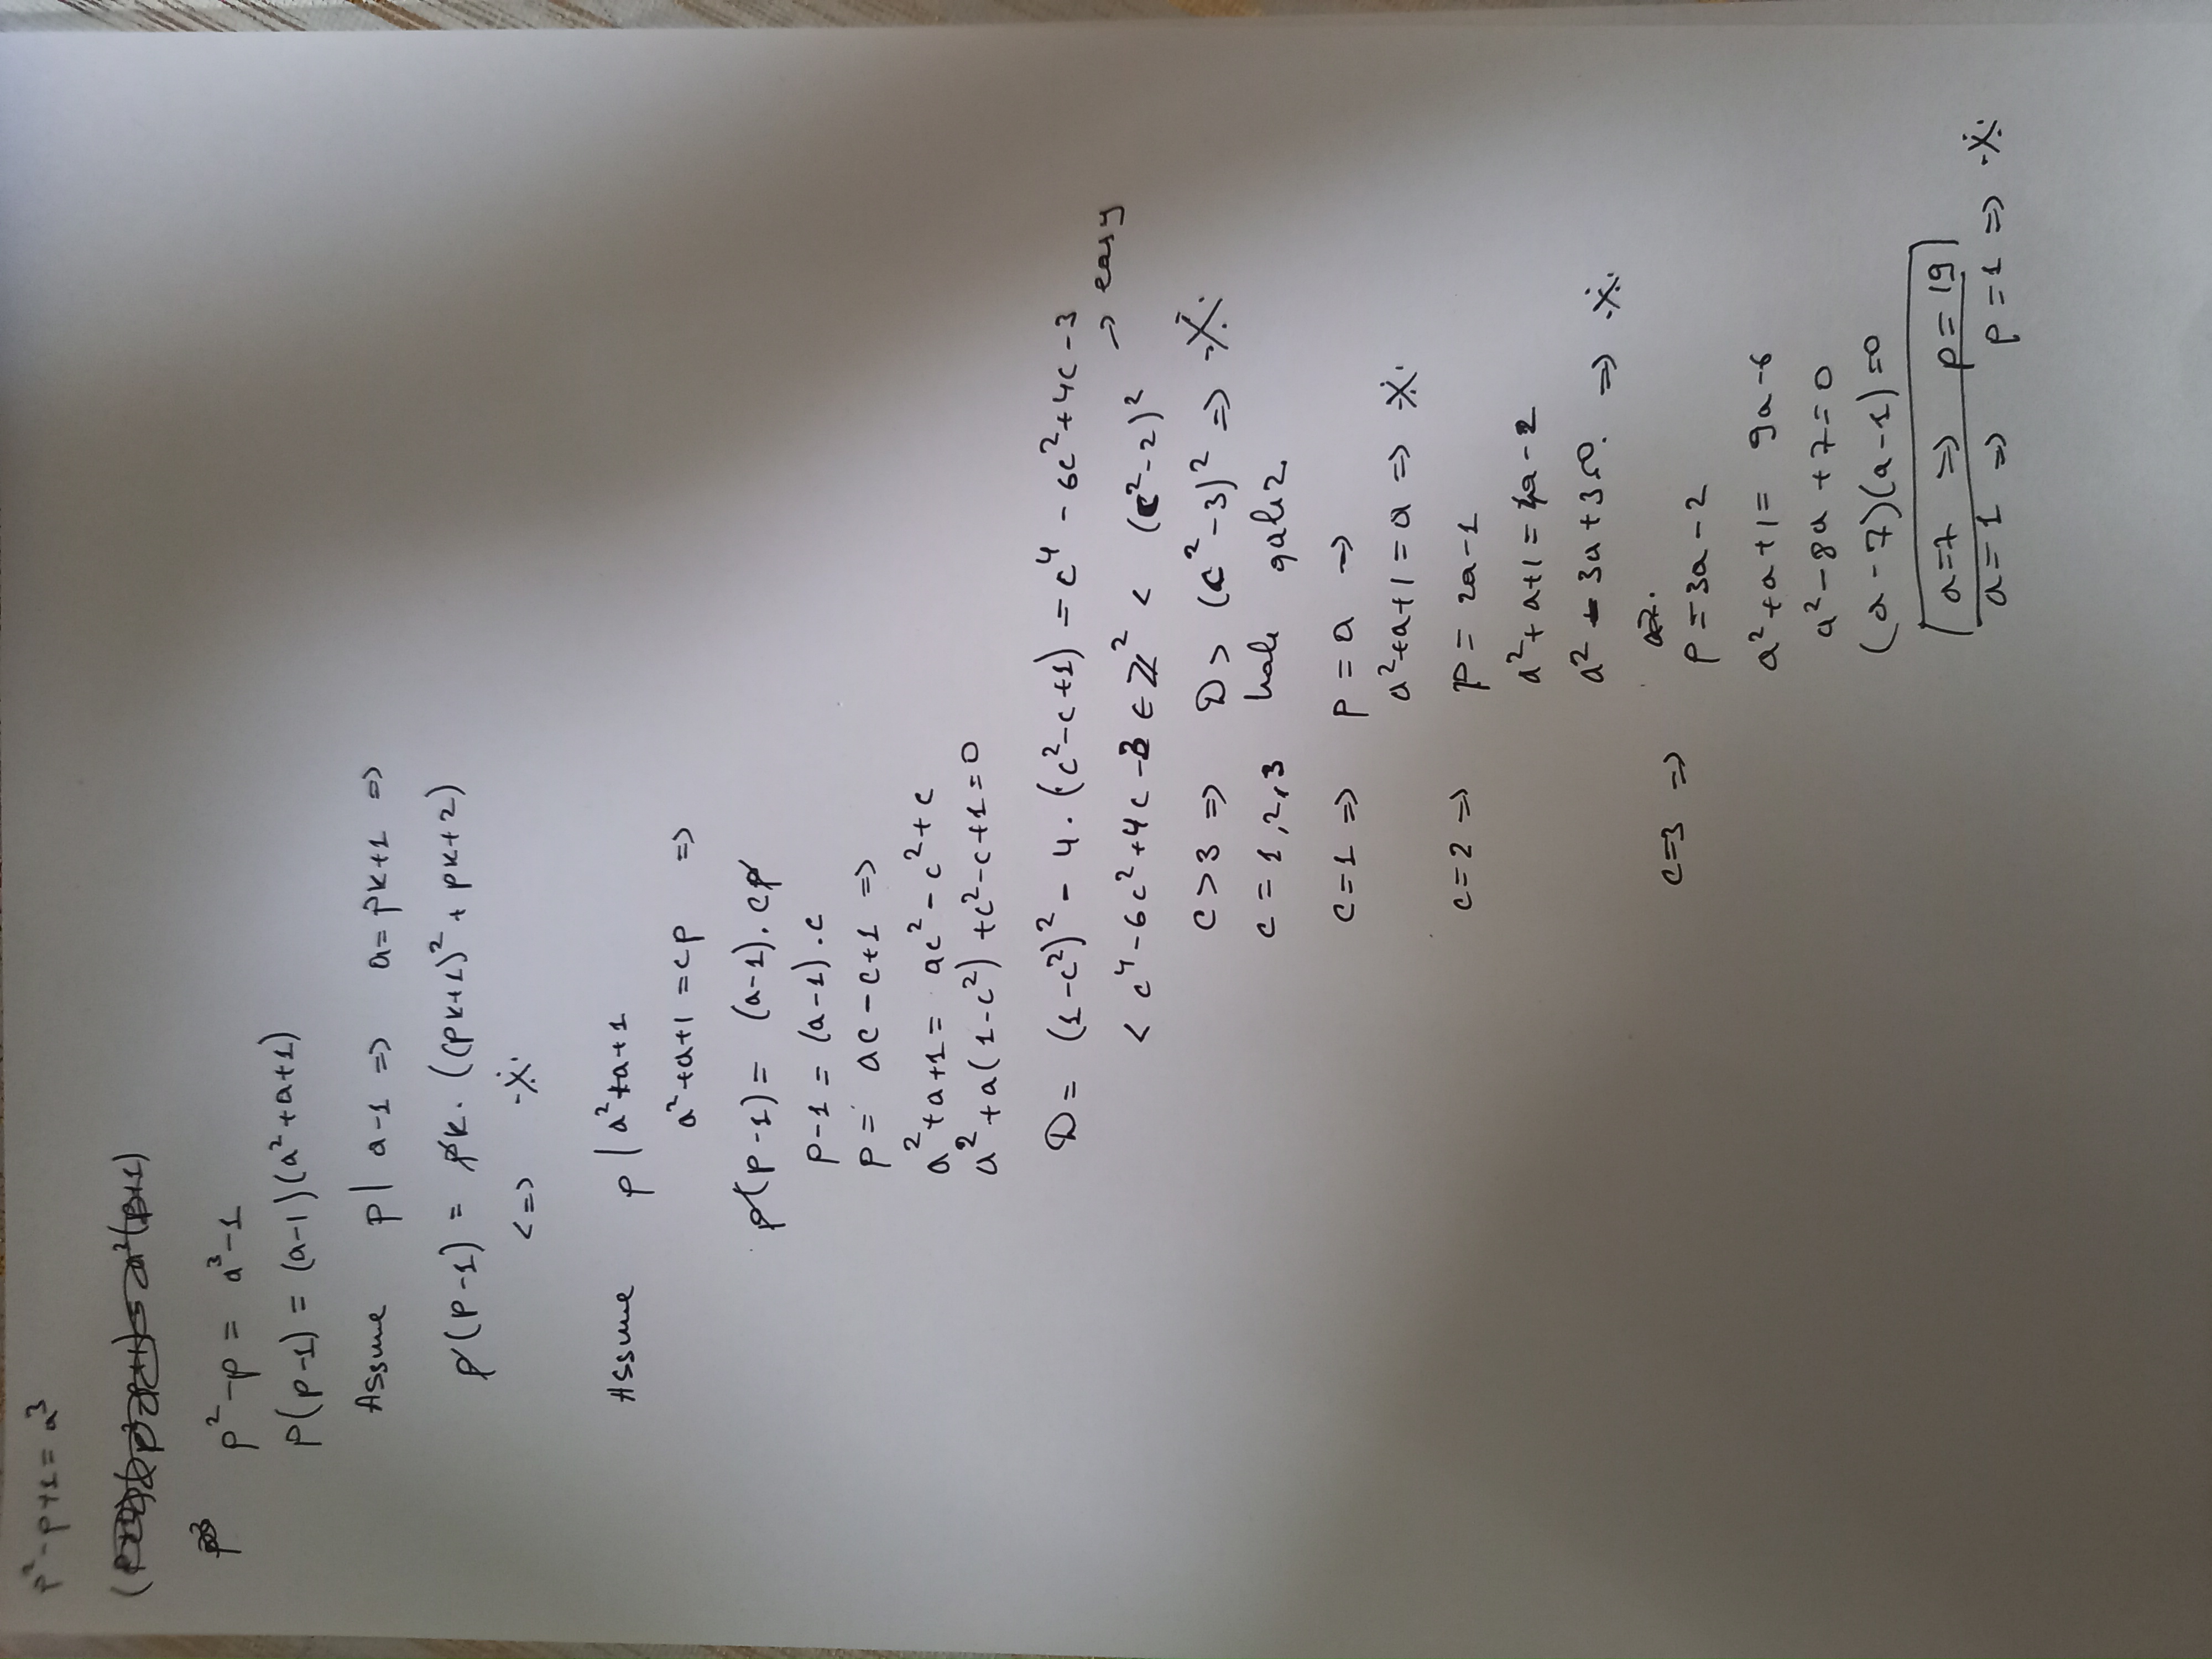 p² - p + 1 = a³
p² - p = a³ - 1
p(p-1) = (a-1)(a² + a + 1)
Assume p | a-1 => a = pk+1 =>
p(p-1) = pk · ((pk+1)² + pk + 2)
<=> ※
Assume p | a² + a + 1
a² + a + 1 = cp =>
p(p-1) = (a-1) · cp
p-1 = (a-1) · c
p = ac - c + 1 =>
a² + a + 1 = ac² - c² + c
a² + a(1-c²) + c² - c + 1 = 0
D = (1-c²)² - 4 · (c² - c + 1) = c⁴ - 6c² + 4c - 3
-> easy
< c⁴ - 6c² + 4c - 3 ∈ ℤ² < (c²-2)²
c > 3 => D > (c²-3)² => ※
c = 1, 2, 3 halı qalız
c = 1 => p = a ->
a² + a + 1 = a => ※
c = 2 => p = 2a - 1
a² + a + 1 = 4a - 2
a² - 3a + 3 = 0. => ※
c = 3 =>
p = 3a - 2
a² + a + 1 = 9a - 6
a² - 8a + 7 = 0
(a - 7)(a - 1) = 0
a = 7 => p = 19
a = 1 => p = 1 => ※